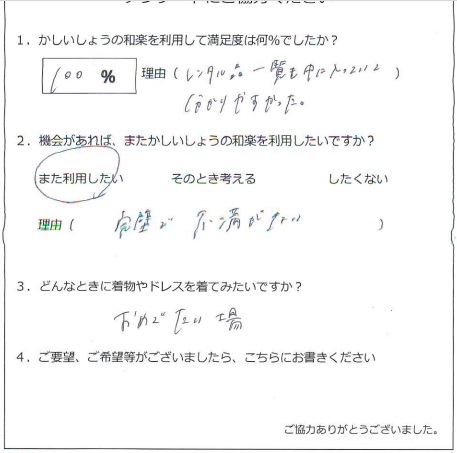 アンケートにご協力ください
1．かしいしょうの和楽を利用して満足度は何％でしたか？
100 ％ 理由（ レンタル品一覧も中に入っていて ）
分かりやすかった。
2．機会があれば、またかしいしょうの和楽を利用したいですか？
また利用したい そのとき考える したくない
理由（ 完璧で 不満がない ）
3．どんなときに着物やドレスを着てみたいですか？
おめでたい場
4．ご要望、ご希望等がございましたら、こちらにお書きください
ご協力ありがとうございました。